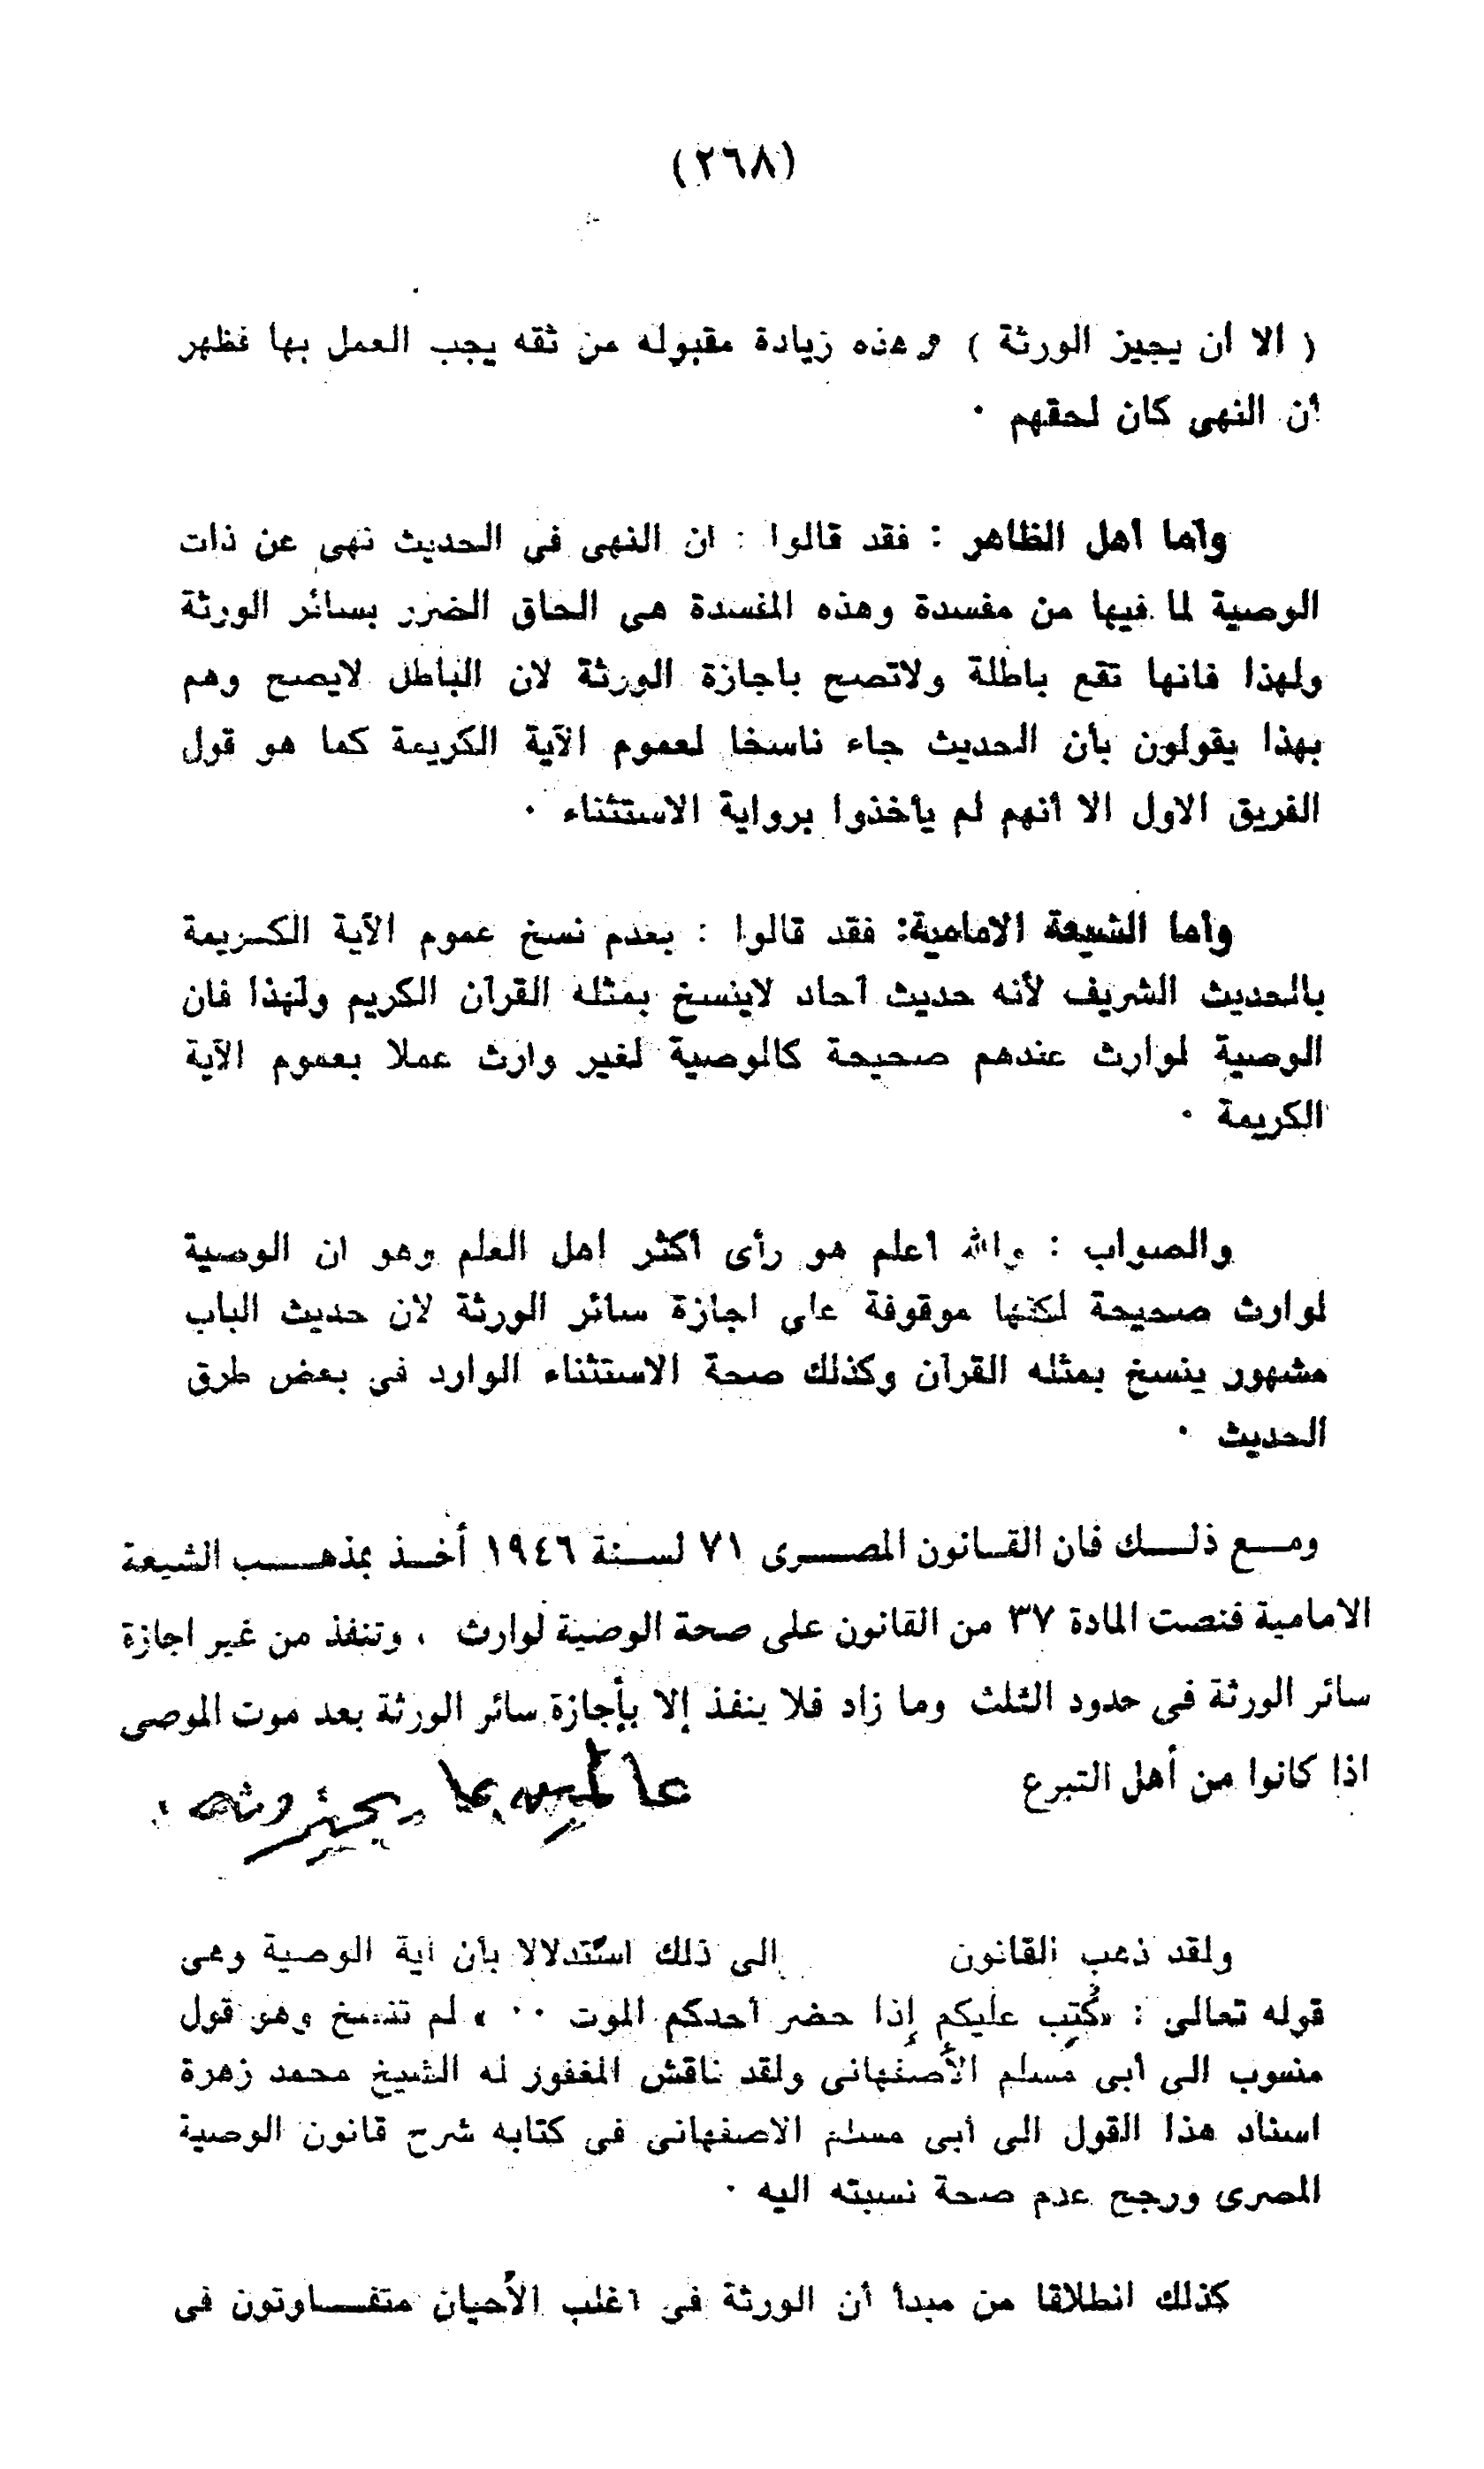 (٢٦٨)
( الا ان يجيز الورثة ) وهذه زيادة مقبوله من ثقه يجب العمل بها فظهر
أن النهى كان لحقهم ٠
وأما أهل الظاهر : فقد قالوا : ان النهى في الحديث نهى عن ذات
الوصية لما فيها من مفسدة وهذه المفسدة هى الحاق الضرر بسائر الورثة
ولهذا فانها تقع باطلة ولاتصح باجازة الورثة لان الباطل لايصح وهم
بهذا يقولون بأن الحديث جاء ناسخا لعموم الآية الكريمة كما هو قول
الفريق الاول الا أنهم لم يأخذوا برواية الاستثناء ٠
وأما الشيعة الامامية: فقد قالوا : بعدم نسخ عموم الآية الكريمة
بالحديث الشريف لأنه حديث آحاد لاينسخ بمثله القرآن الكريم ولهذا فان
الوصية لوارث عندهم صحيحة كالوصية لغير وارث عملا بعموم الآية
الكريمة ٠
والصواب : والله أعلم هو رأى أكثر اهل العلم وهو ان الوصية
لوارث صحيحة لكنها موقوفة على اجازة سائر الورثة لان حديث الباب
مشهور ينسخ بمثله القرآن وكذلك صحة الاستثناء الوارد في بعض طرق
الحديث ٠
ومع ذلك فان القانون المصرى ٧١ لسنة ١٩٤٦ أخذ بمذهب الشيعة
الامامية فنصت المادة ٣٧ من القانون على صحة الوصية لوارث ، وتنفذ من غير اجازة
سائر الورثة فى حدود الثلث وما زاد فلا ينفذ إلا بأجازة سائر الورثة بعد موت الموصى
اذا كانوا من أهل التبرع
ولقد ذهب القانون الى ذلك استدلالا بأن آية الوصية وهى
قوله تعالى : «كُتِب عليكم إِذا حضر أحدكم الموت ٠٠ » لم تنسخ وهو قول
منسوب الى أبى مسلم الأصفهانى ولقد ناقش المغفور له الشيخ محمد زهرة
اسناد هذا القول الى أبى مسلم الاصفهانى فى كتابه شرح قانون الوصية
المصرى ورجح عدم صحة نسبته اليه ٠
كذلك انطلاقا من مبدأ أن الورثة فى اغلب الأحيان متفاوتون فى